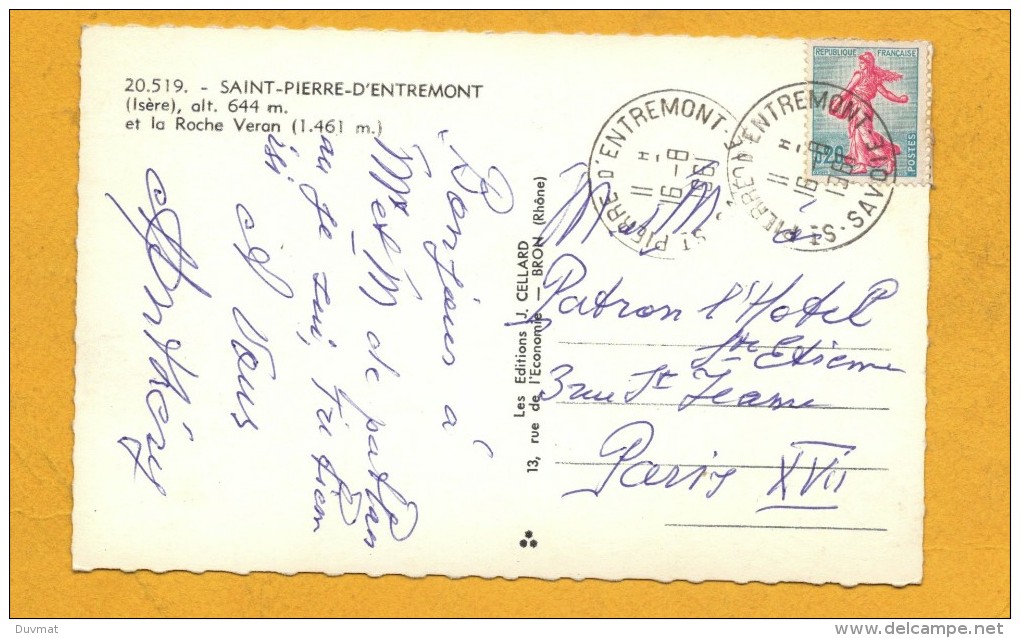 20.519. - SAINT-PIERRE-D'ENTREMONT
(Isère), alt. 644 m.
et la Roche Veran (1.461 m.)
Bonjour à
Mme et M de
au Je suis
ici
et Vous
Les Editions J. CELLARD
13, rue de l'Economie — BRON (Rhône)
REPUBLIQUE FRANÇAISE
0,20
POSTES
ST PIERRE D'ENTREMONT
11 H
16 - 8
1961
ST PIERRE D'ENTREMONT - IS - SAVOIE
11 H
16 - 8
1961
Patron l'Hotel
Ste Etienne
3 rue St Jeanne
Paris XVII
Duvmat
delcampe.net